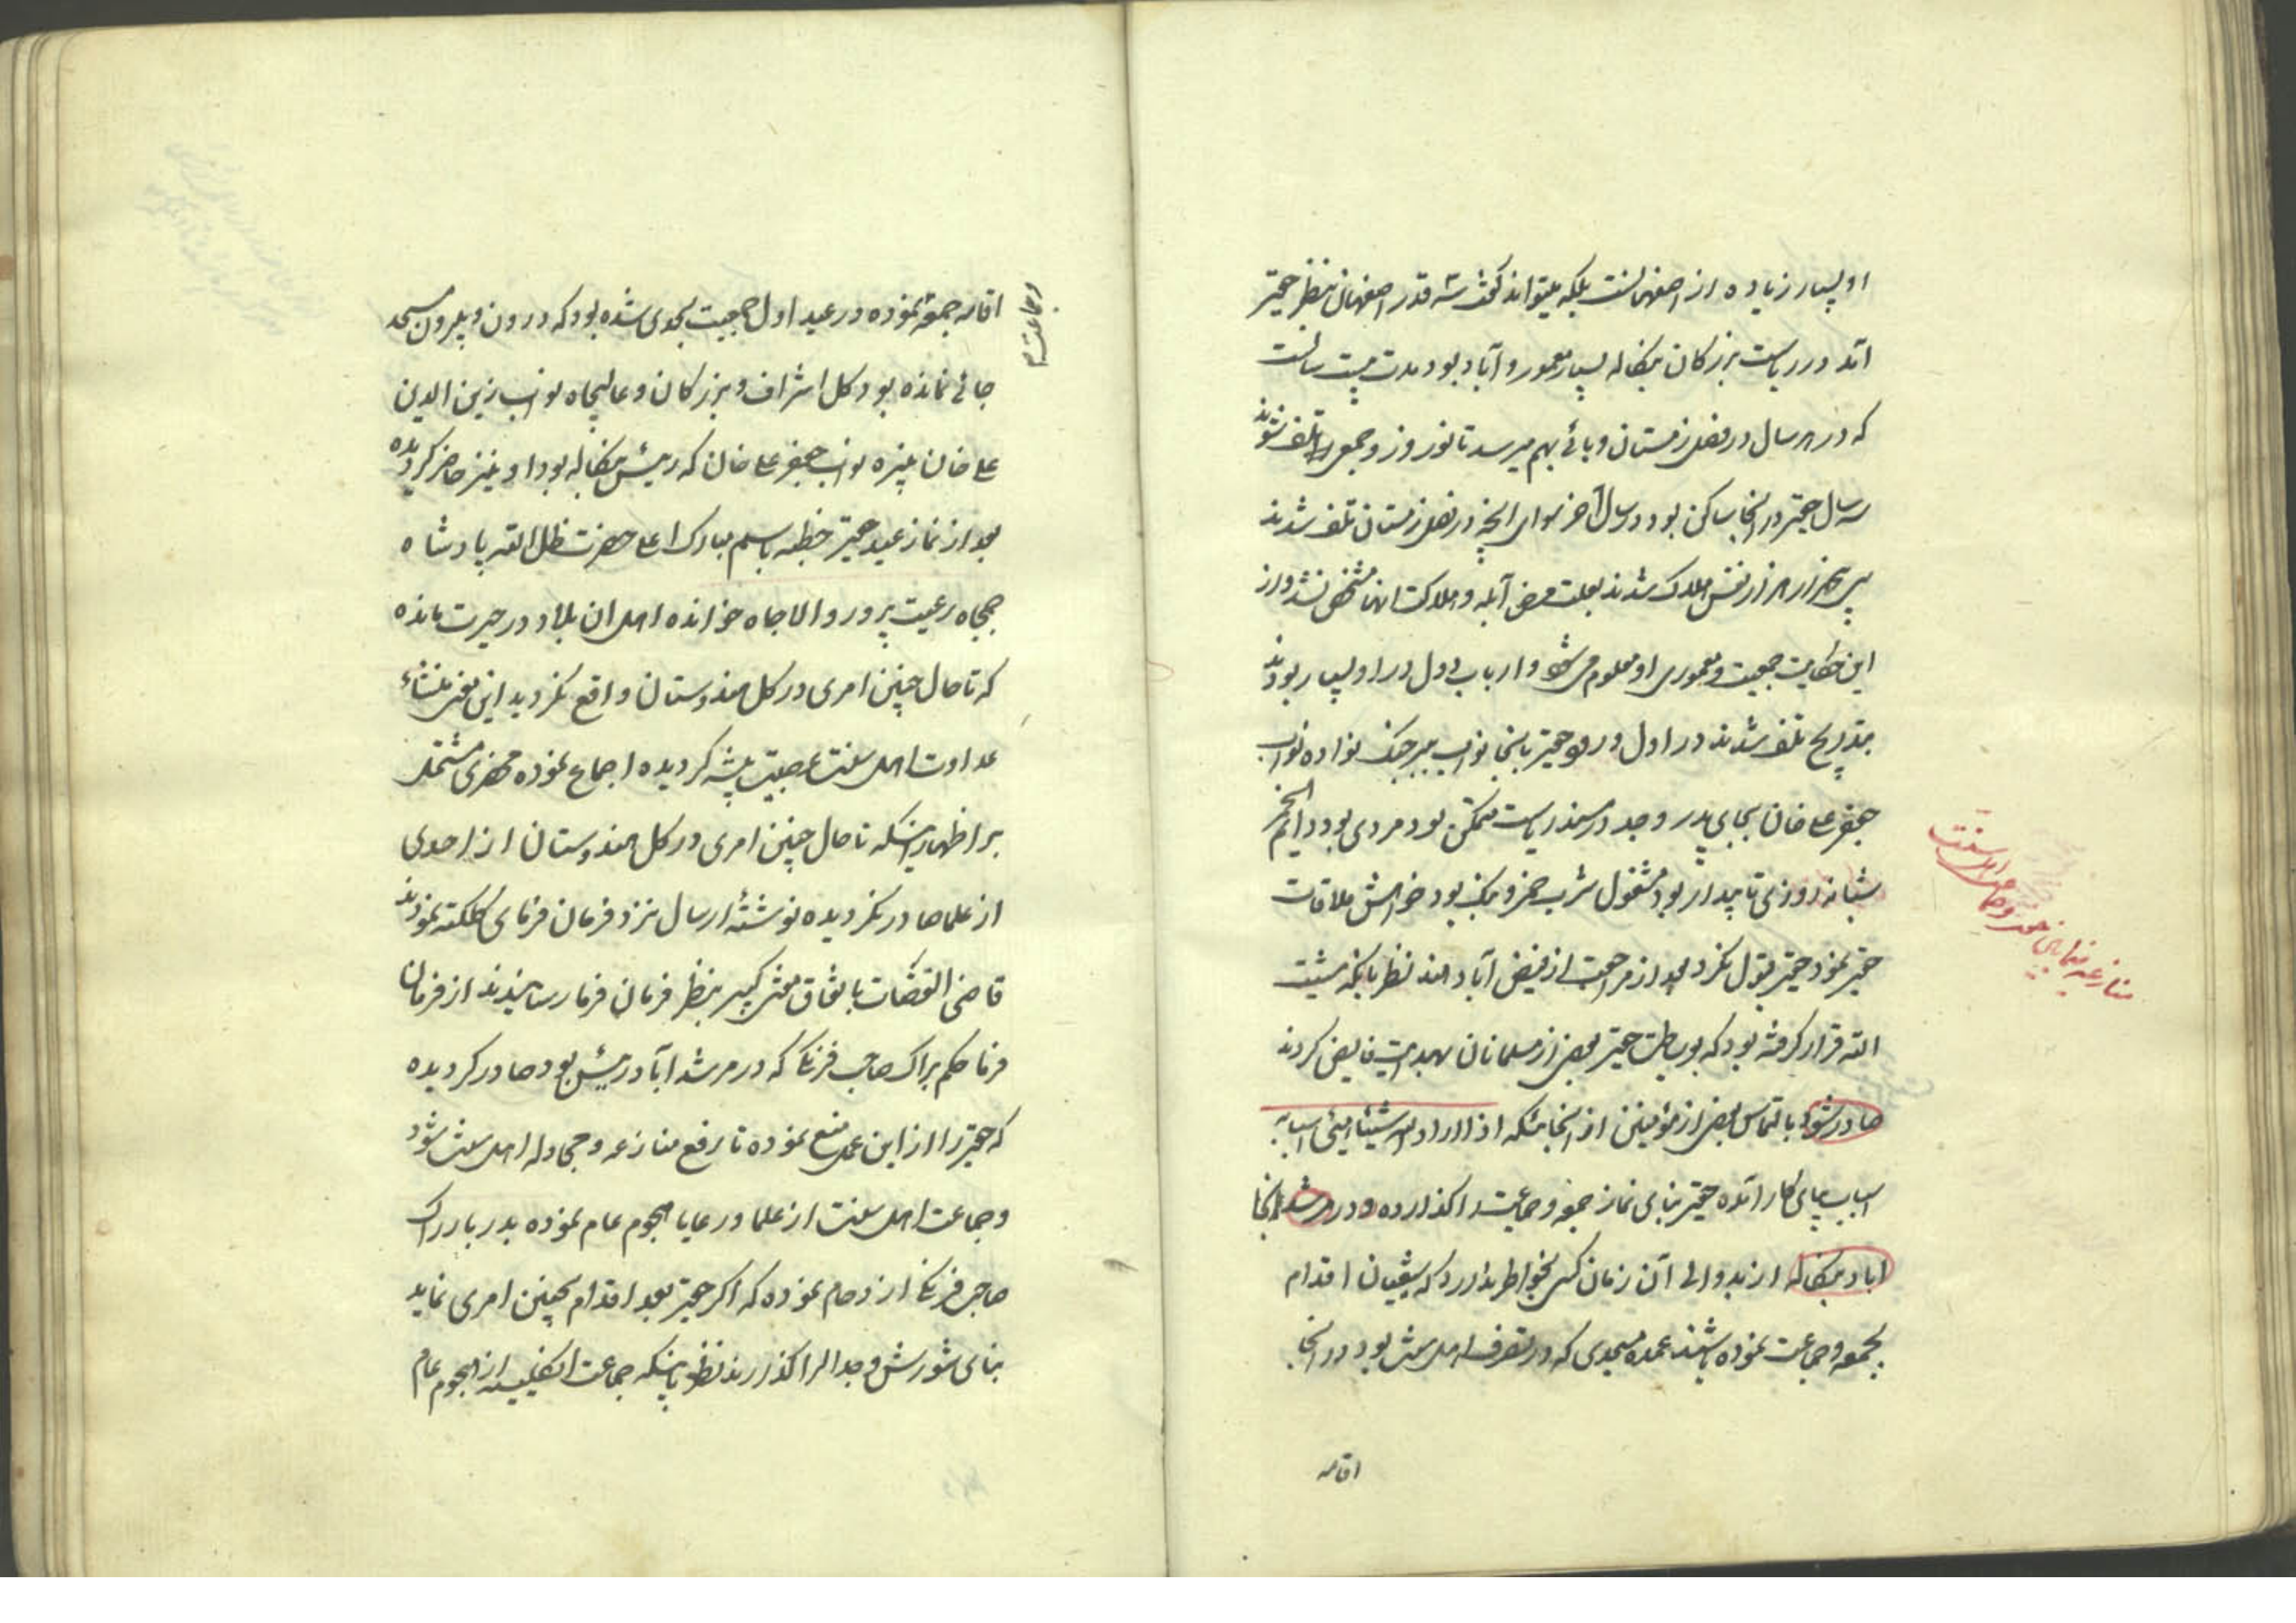 او بسیار زیاده از اصفهانست بلکه میتواند گذشته قدر اصفهان بنظر حقیر
آمد در ریاست بزرگان بنگاله بسیار معمور و آباد بود مدت بیست سالست
که در هر سال در فصل زمستان وبائی بهم میرسد تا نوروز و جمعی تلف شوند
سه سال حقیر در آنجا ساکن بود در سال آخر سوای آنچه در فصل زمستان تلف شدند
سی هزار نفس هلاک شدند بعلت مرض آبله و هلاکت آنها مشخص نشد و از
این حکایت جمعیت و معموری او معلوم می شود و ارباب دول در او بسیار بودند
بتدریج تلف شدند در اول ورود حقیر بآنجا نواب ببر جنگ نواده نواب
جعفر علی خان بجای پدر و جد در مسند ریاست متمکن بود مردی بود دایم الخمر
شبانه روزی تا بیدار بود مشغول شرب خمر و بنگ بود خواهش ملاقات
حقیر نمود حقیر قبول نکرد بعد از مراجعت از فیض آباد هند نظر باینکه مشیت
الله قرار گرفته بود که بوساطت حقیر بعضی از مسلمانان بهدایت فایض کردند
صادر شود بالتماس بعضی از مؤمنین از آنجائیکه اذا اراد الله شیئا هیئ اسبابه
اسباب پای کار آمده حقیر بنای نماز جمعه و جماعت را گذارده و در مرشد آنجا
اباد بنگاله از بدو الی آن زمان کسی بخواطر ندارد که شیعیان اقدام
بجمعه و جماعت نموده باشند عمده مسجدی که در تصرف اهل سنت بود در آنجا
اقامه
منازعه نمودن حقیر و جماعت اهل سنت
اقامه جمعه نموده در عید اول جمعیت بحدی شده بود که درون و بیرون مسجد
و جماعت م
جائی نمانده بود کل اشراف و بزرگان و عالیجاه نواب زین الدین
علی خان نبیره نواب جعفر علی خان که رئیس بنگاله بود او نیز حاضر گردیده
بعد از نماز عید حقیر خطبه باسم مبارک اعلی حضرت ظل الله پادشاه
جمجاه رعیت پرور والاجاه خوانده اهل ان بلاد در حیرت مانده
که تا حال چنین امری در کل هندوستان واقع نگردید این معنی منشاء
عداوت اهل سنت عصبیت پیشه گردیده اجماع نموده محضری مشتمل
بر اظهار اینکه تا حال چنین امری در کل هندوستان از احدی
از علما صادر نگردیده نوشته ارسال نزد فرمان فرمای کلکته نمودند
قاضی القضات باتفاق مفتی کبیر بنظر فرمان فرما رسانیدند از فرمان
فرما حکم براک صاحب فرنگی که در مرشد آباد رئیس بود صادر گردیده
که حقیر را از این عمل منع نموده تا رفع منازعه و مجادله اهل سنت شود
و جماعت اهل سنت از علما و رعایا هجوم عام نموده بدربار راک
صاحب فرنگی ازدحام نموده که اگر حقیر بعد اقدام بچنین امری نماید
بنای شورش و جدال را گذارند نظر باینکه جماعت انگلیسه از هجوم عام